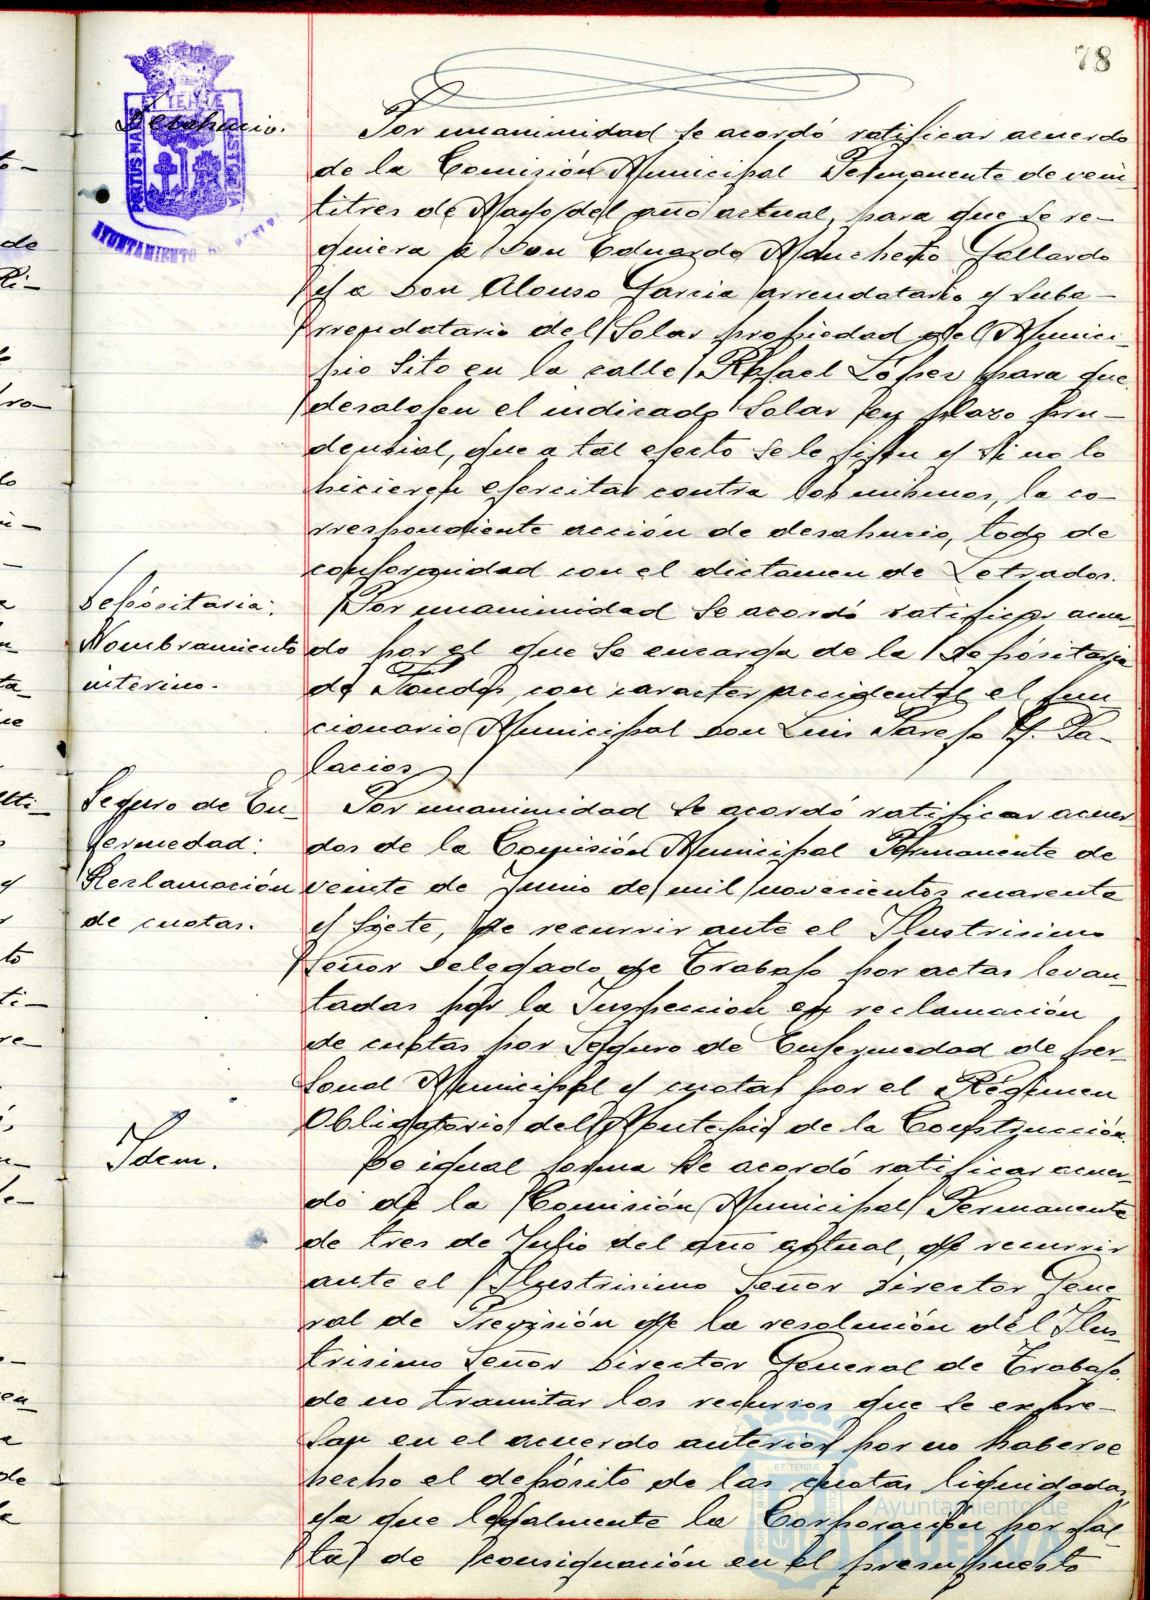 78
Desahucio.
Por unanimidad se acordó ratificar acuerdo
de la Comisión Municipal Permanente de vein
titres de Mayo del año actual, para que se re-
quiera a Don Eduardo Mancheño Gallardo
y a Don Alonso Garcia arrendatario y suba-
rrendatario del Solar propiedad del Munici-
pio sito en la calle Rafael López para que
desalojen el indicado Solar en plazo pru-
dencial, que a tal efecto se le fijen y si no lo
hicieren ejercitar contra los mismos, la co-
rrespondiente acción de desahucio, todo de
conformidad con el dictamen de Letrados.
Depósitaria:
Nombramiento
interino.
Por unanimidad se acordó ratificar acuer-
do por el que se encarga de la Depósitaria
de Fondos, con caracter accidental el fun
cionario Municipal don Luis Parejo y Pa-
lacios
Seguro de En-
fermedad:
Reclamación
de cuotas.
Por unanimidad se acordó ratificar acuer-
dos de la Comisión Municipal Permanente de
veinte de Junio de mil novecientos cuarenta
y siete, de recurrir ante el Ilustrisimo
Señor Delegado de Trabajo por actas levan-
tadas por la Inspeccion en reclamación
de cuotas por Seguro de Enfermedad de per-
sonal Municipal y cuotas por el Régimen
Obligatorio del Montepio de la Construcción.
Idem.
De igual forma se acordó ratificar acuer-
do de la Comisión Municipal Permanente
de tres de Julio del año actual, de recurrir
ante el Ilustrisimo Señor Director Gene
ral de Previsión de la resolución del Ilus-
trisimo Señor Director General de Trabajo,
de no tramitar los recursos que se expre-
san en el acuerdo anterior por no haberse
hecho el depósito de las cuotas liquidadas,
ya que legalmente la Corporación por fal-
ta de consignación en el presupuesto
ET TERRÆ
PORTUS MARIS
CUSTODIA
AYUNTAMIENTO
Ayuntamiento de
HUELVA